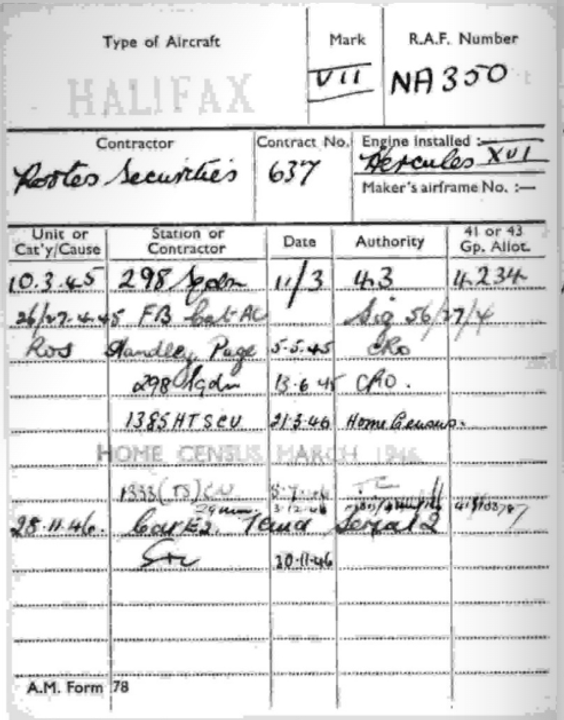 Type of Aircraft Mark R.A.F. Number
HALIFAX VII NA350
Contractor Contract No. Engine installed :—
Rootes Securities 637 Hercules XVI
Maker's airframe No. :—
Unit or Cat'y/Cause Station or Contractor Date Authority 41 or 43 Gp. Allot.
10.3.45 298 Sqdn 11/3 43 4234
26/27.4.45 FB Cat AC Sig 56/27/4
ROS Handley Page 5.5.45 CRO
298 Sqdn 13.6.45 CRO.
1385 HTSCU 21.3.46 Home Census.
HOME CENSUS MARCH 1946
1333 (TS) CU
28.11.46. Cat E2. Serial 2
20.11.46
A.M. Form 78